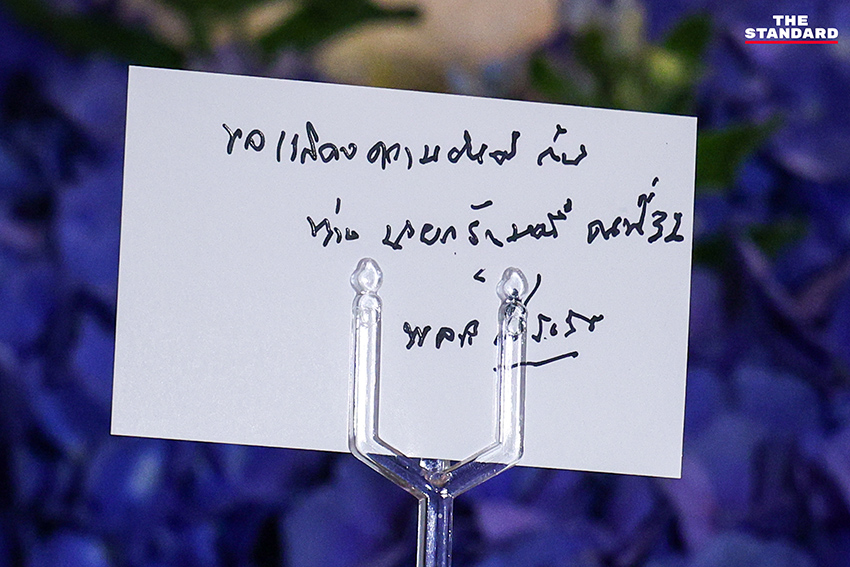 THE
STANDARD
ขอแสดงความยินดี กับ
ท่าน นายกรัฐมนตรี คนที่ 32
พล.อ.